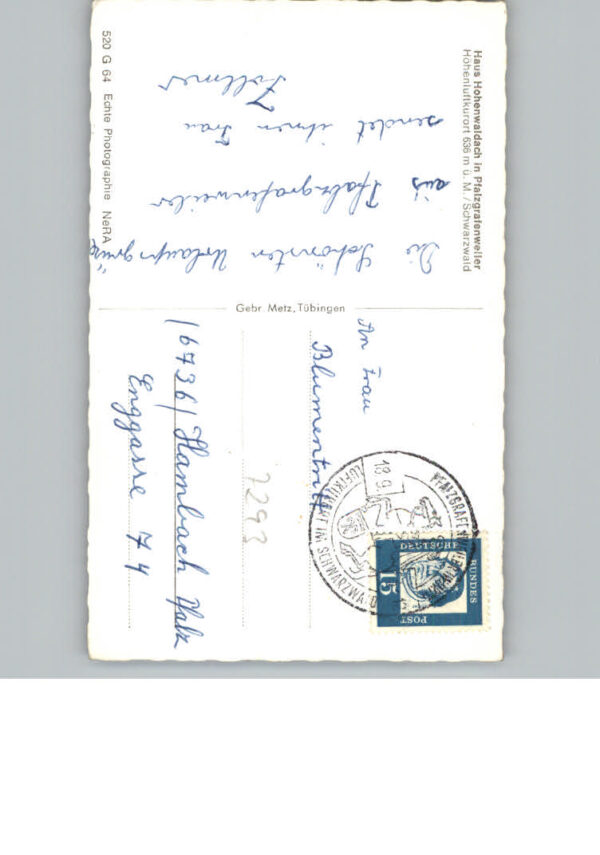 Haus Hohenwaldach in Pfalzgrafenweiler
Höhenluftkurort 636 m ü. M. / Schwarzwald
Die Schönsten Urlaubsgrüße
aus Pfalzgrafenweiler
sendet ihnen Frau
Zollmer
520 G 64 Echte Photographie NeRA
Gebr. Metz, Tübingen
An Frau
Blumentritt
(6736) Hambach Pfalz
Enggasse 74
7293
18.9.
LUFTKURORT IM SCHWARZWALD
DEUTSCHE
BUNDES
POST
15